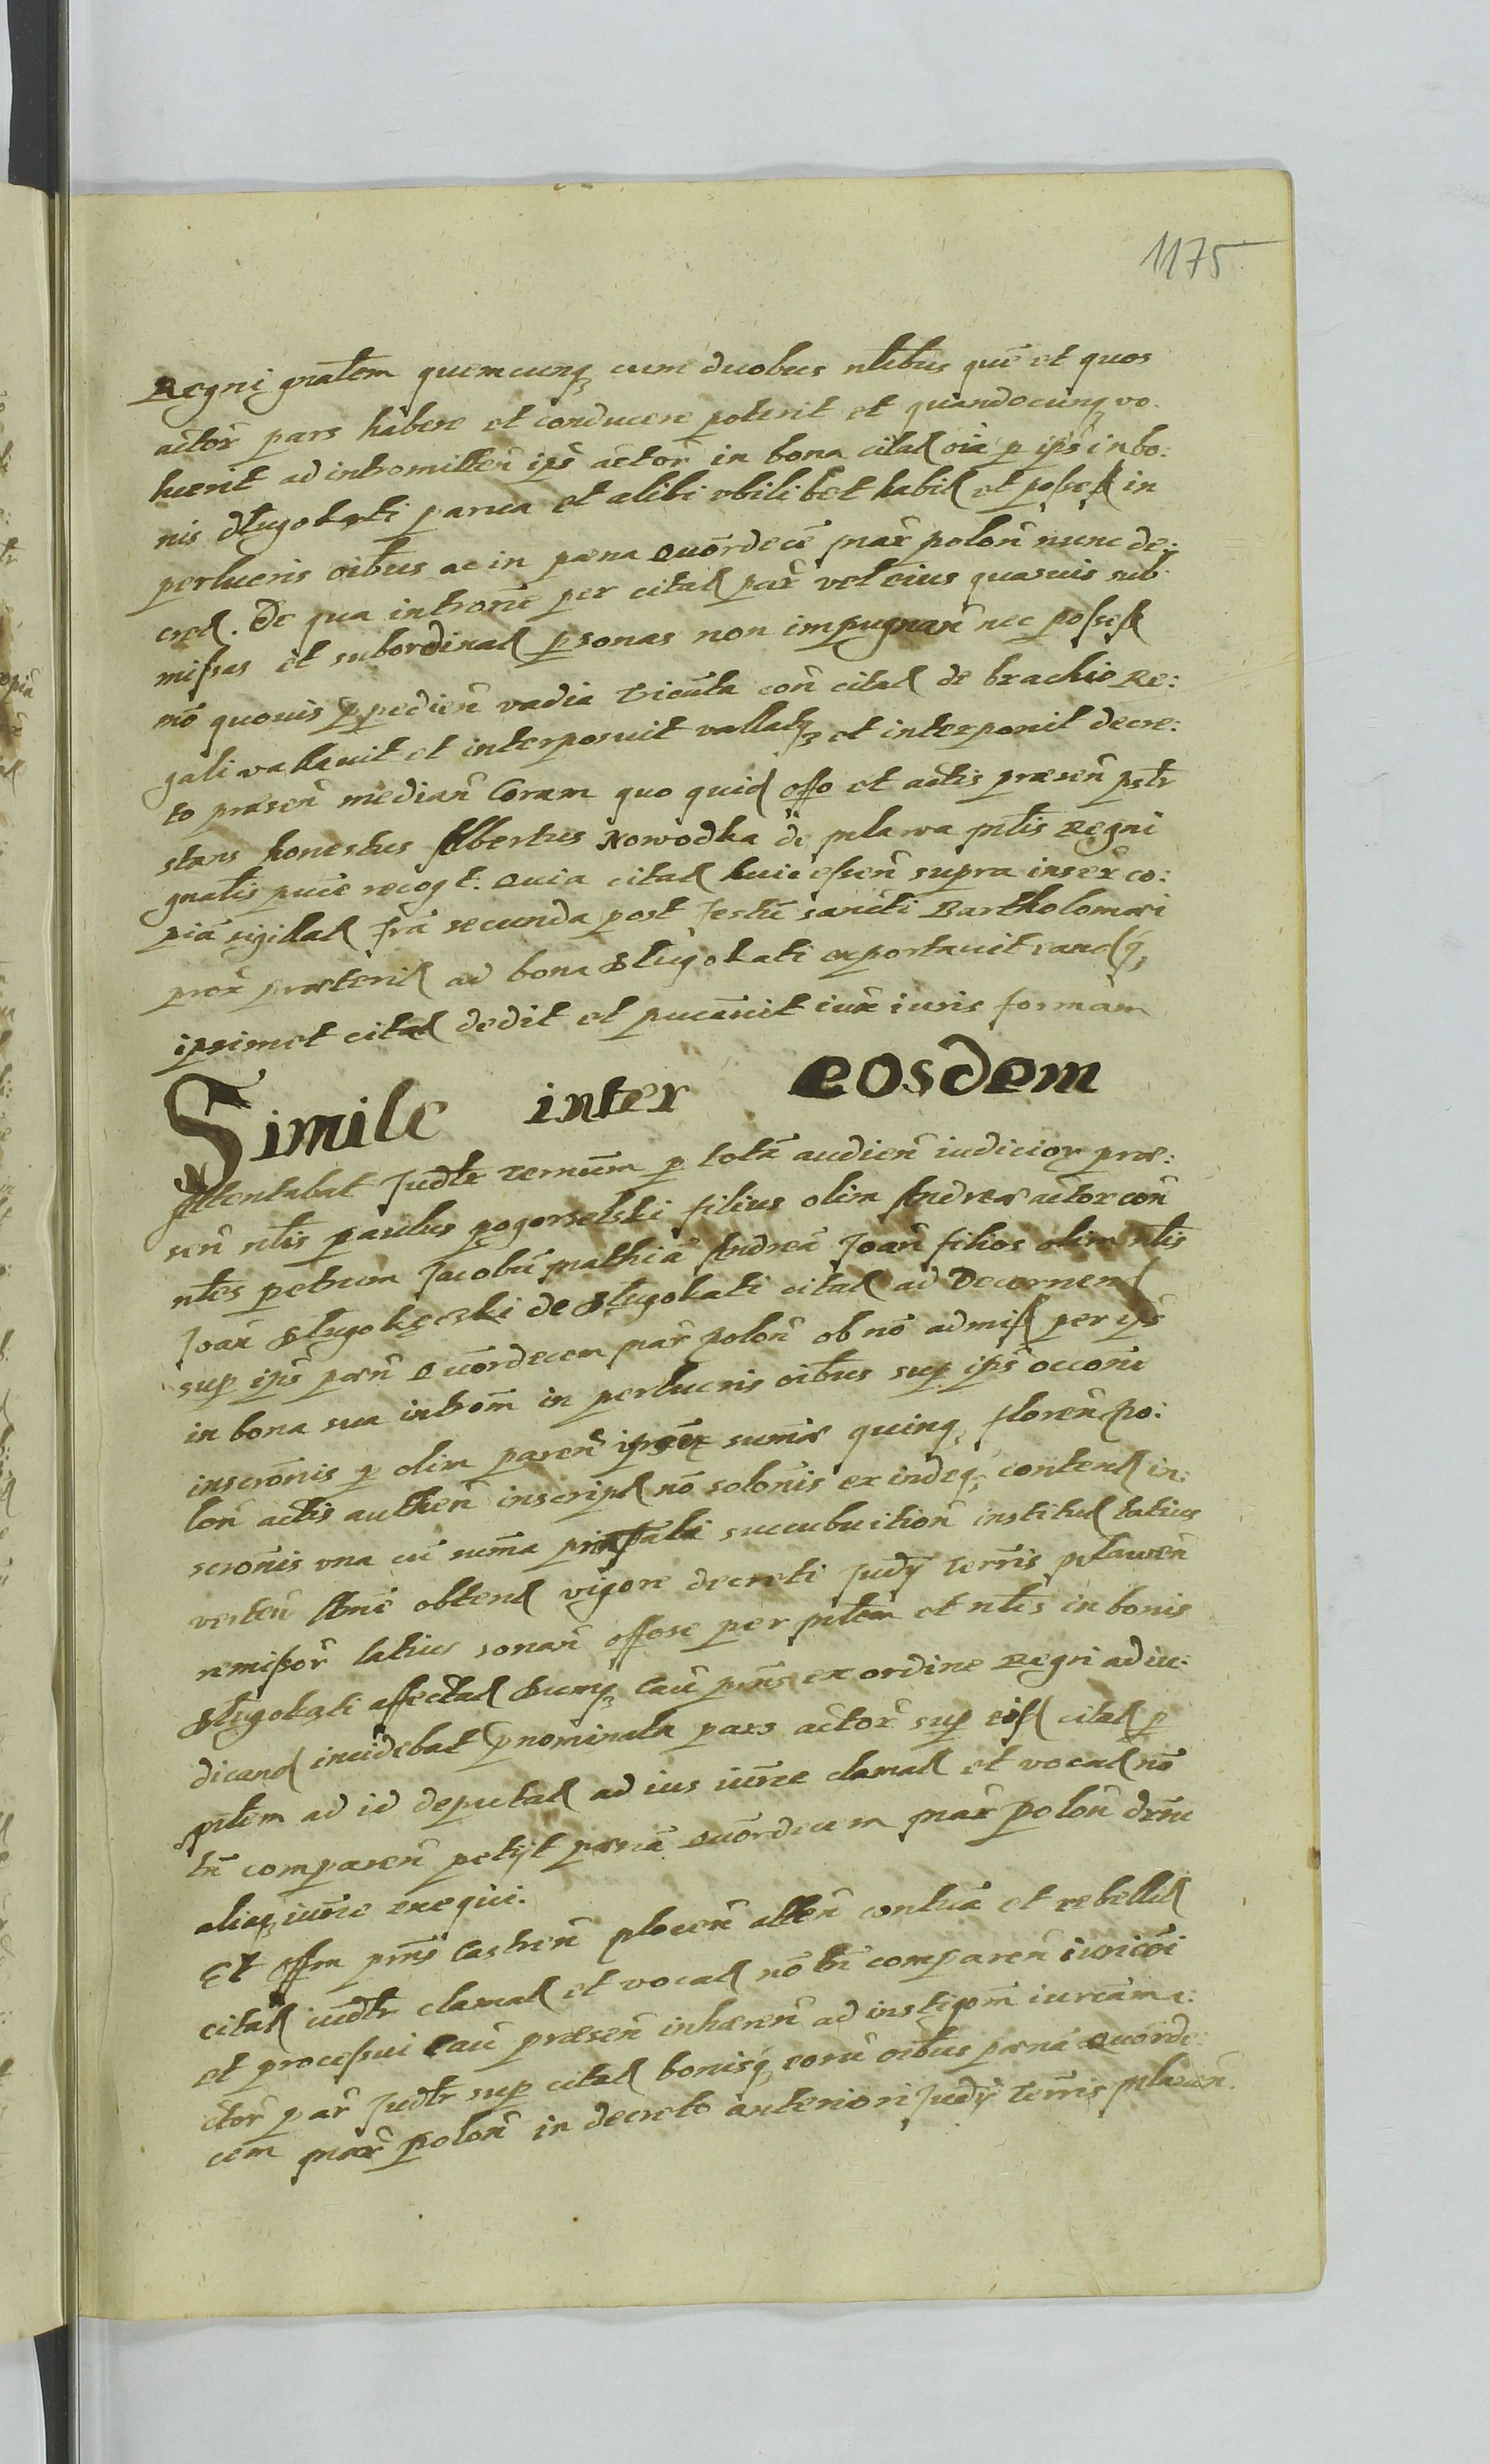 1175
Regni gnałem quemcunq cum duobus nłibus quē et quos
actor pars habere et conducere poterit et quandocunq vo.
luerit ad intromitteñ ips actor in bona citał oia p ips in bo:
nis Długokąti parua et alibi vbilibet habił et posseß in
perlucris oibus ac in pæna quordecē mar polon nunc de:
creł. De qua introne per citał par vel eius quasuis sub:
missas et subordinał psonas non impugnañ nec posseß
mō quouis ppedien vadia tricenta con citał de brachio Re:
gali vallauit et interposuit vallatq et interponit decre:
to præsen median Coram quo quid offo et actis præsen psłr
stans honestus Albertus Nowodka de mlawa młis Regni
gnałis puce recogt. Quia citał huic essen supra inser co:
piā sigillał fria secunda post festū sancti Bartholomæi
prox præteriť ad bona Długokąti exportauit eandq
ipsimet citał dedit et pucauit iux iuris formam
Simile inter eosdem
Attentabat Judłr termūm p totā audien iudicior præ:
sen nłis paulus pogorzelski filius olim Andreæ actor con
nłes petrum Jacobū mathiā Andreā Joan filios olim nłis
Joan Długokęcski de Długokąti citał ad Decernenď
sup ips pæn quordecem mar polon ob nō admiß per ips
in bona sua introm in perlucris oibus sup ips occone
inscronis p olim paren ipsor summæ quinq floren po:
lon actis authen inscripł nō solonis exindeq contenť in:
scronis vna cū summa prinpali succubuition institut latius
verten obtenť vigore decreti Judÿ terris mlawen
remissor latius sonan offose per młem et nłis in bonis
Długokąti affectał Dumq Cau pñs ex ordine Regri adiu:
dicanď incidebat pnominata pars actor sup eisď citał p
młem ad id deputał ad ius iurice clamał et vocał nō
tn comparen petijt pænā quordecem mar polon
aliaq iurice exequi.
Et offm pñs Castren plocen atten contuā et rebellił
citał iudłr clamał et vocał nō tn comparen
et processui Cau præsen inhæren ad instiom iuricam a:
ctor par Judłr sup citał bonisq eorū oibus pænā quorde:
cem mar polon in decreto anteriori Judÿ terris mlawen